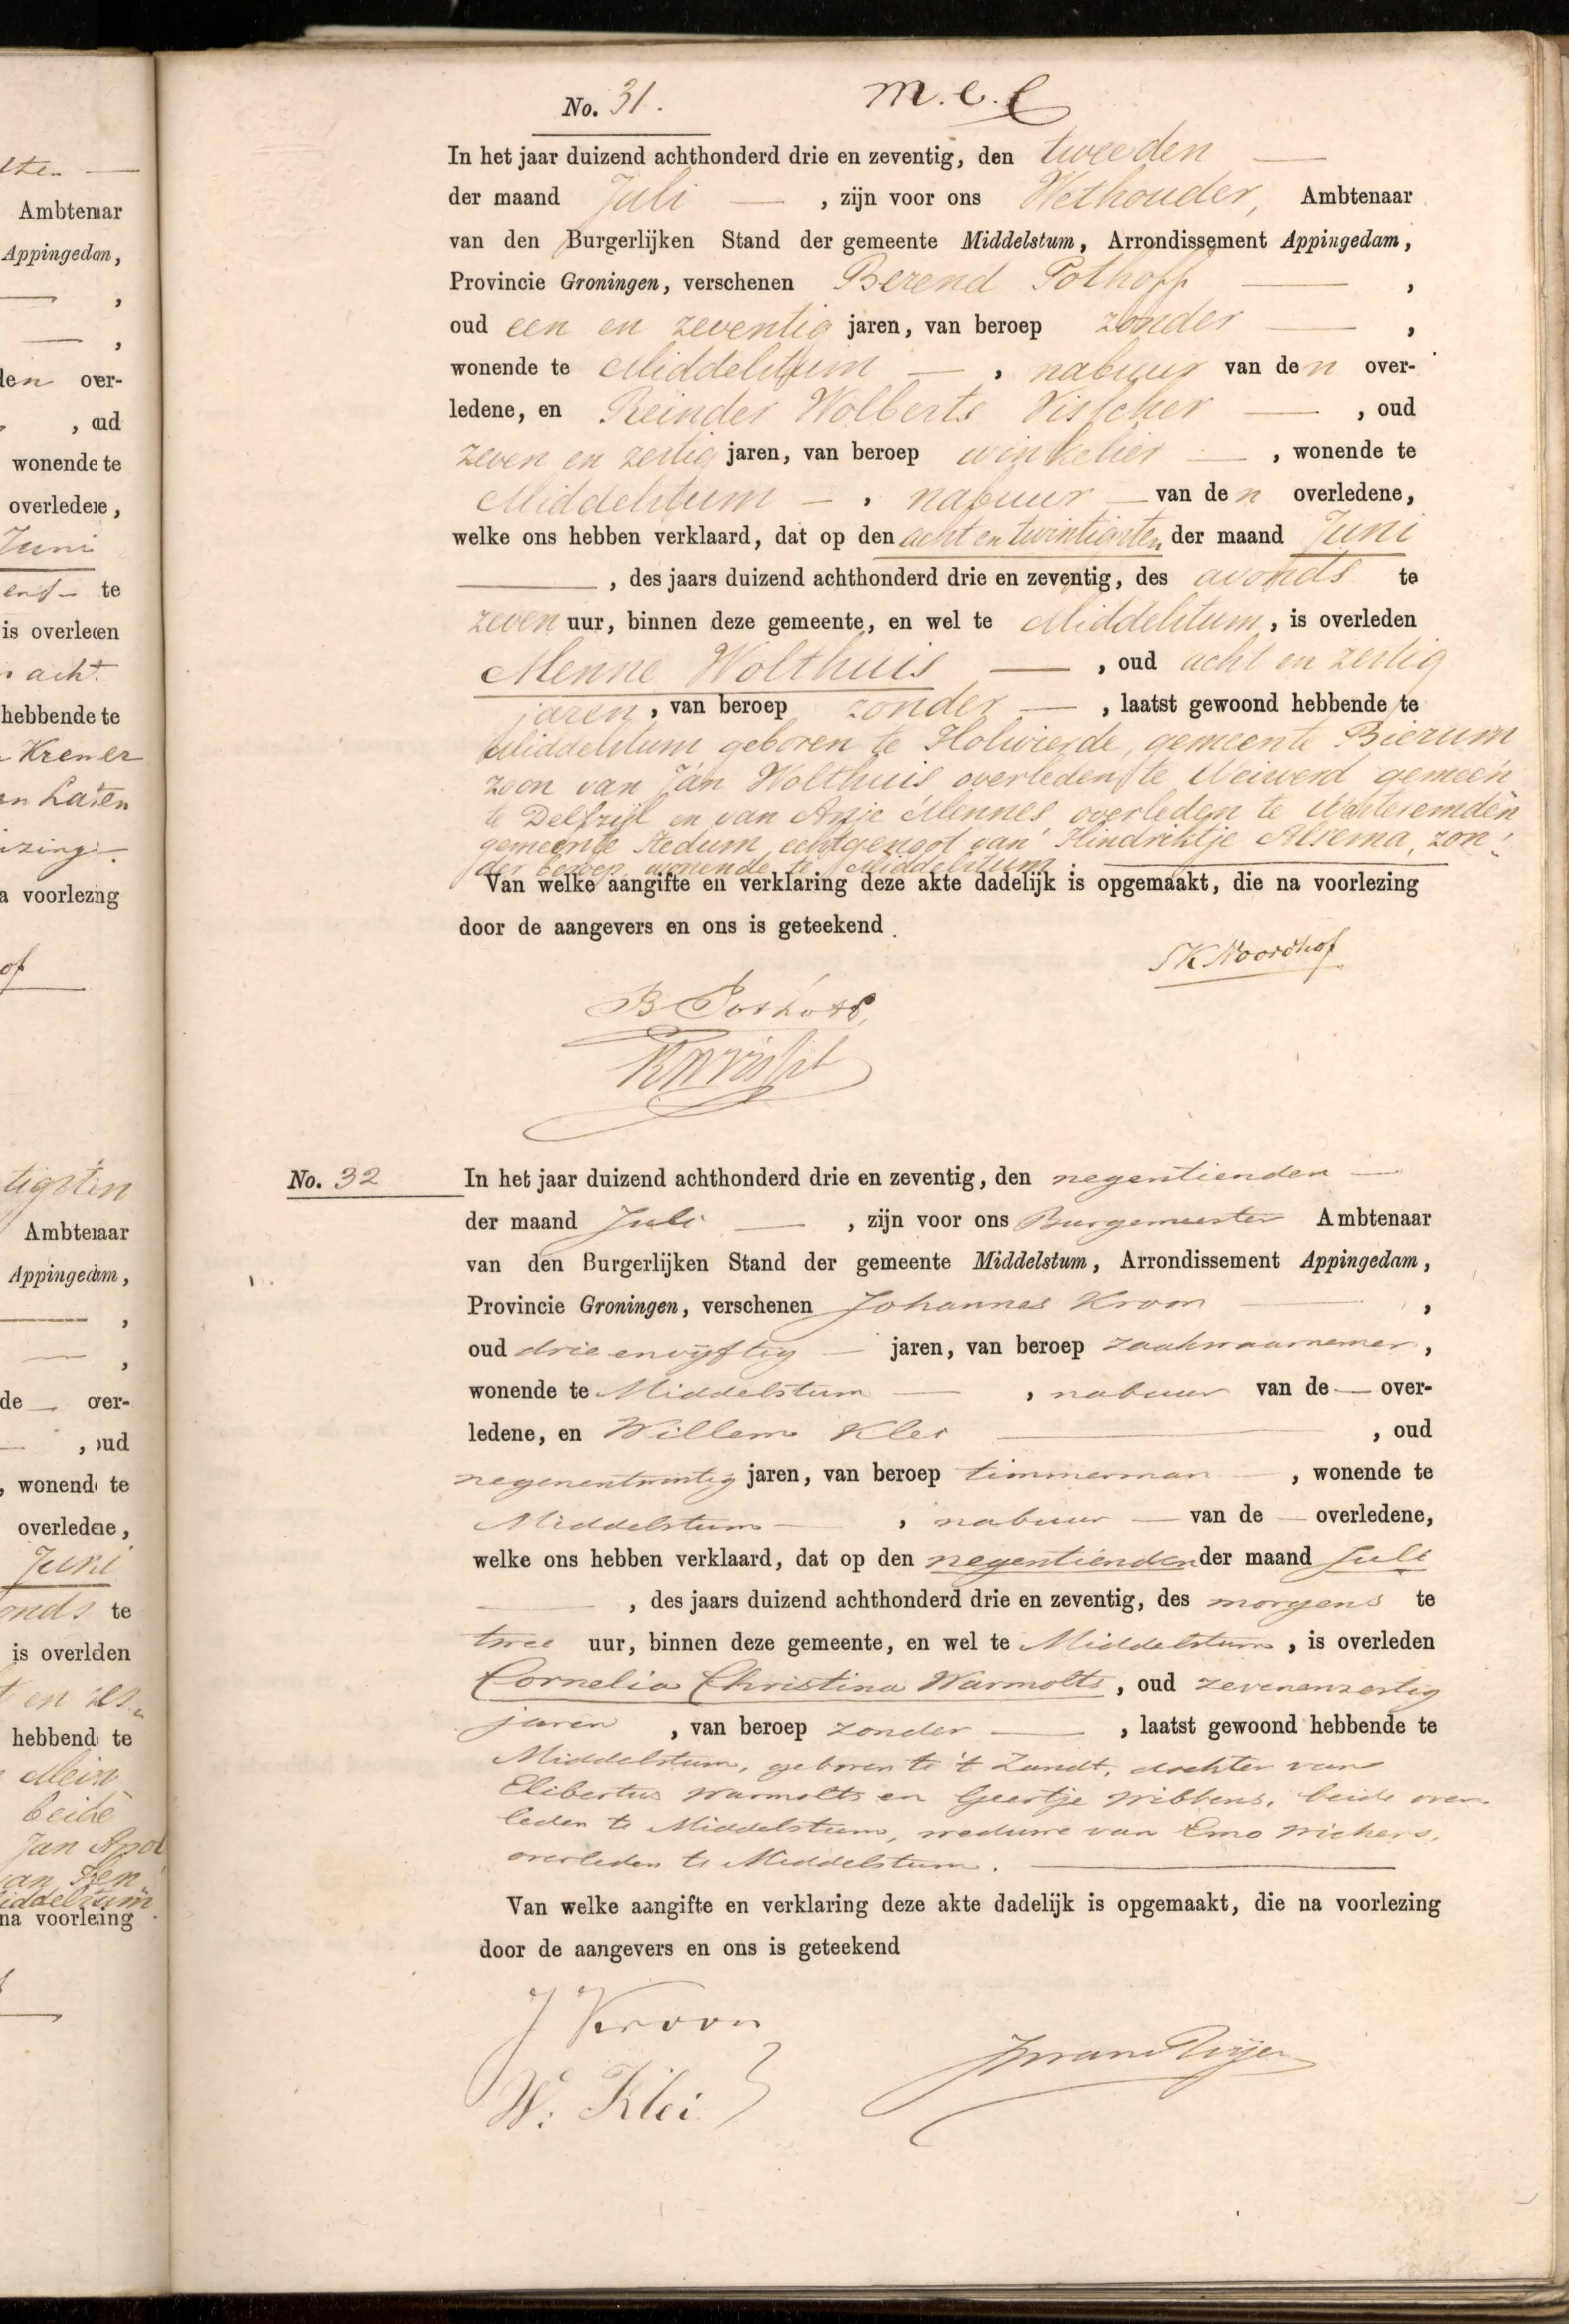 No. 31.
m.e.l
In het jaar duizend achthonderd drie en zeventig, den tweeden —
der maand Juli — , zijn voor ons Wethouder, Ambtenaar
van den Burgerlijken Stand der gemeente Middelstum, Arrondissement Appingedam,
Provincie Groningen, verschenen Berend Pothoff — ,
oud een en zeventig jaren, van beroep zonder — ,
wonende te Middelstum — , nabuur van den over-
ledene, en Reinder Wolberts Visscher — , oud
zeven en zestig jaren, van beroep winkelier — , wonende te
Middelstum — , nabuur — van den overledene,
welke ons hebben verklaard, dat op den acht en twintigsten der maand Juni
— , des jaars duizend achthonderd drie en zeventig, des avonds te
zeven uur, binnen deze gemeente, en wel te Middelstum, is overleden
Menne Wolthuis — , oud acht en zestig
jaren, van beroep zonder — , laatst gewoond hebbende te
Middelstum geboren te Holwierde, gemeente Bierum
zoon van Jan Wolthuis, overleden te Weiwerd gemeen
te Delfzijl en van Anje Mennes overleden te Westeremden
gemeente Stedum, echtgenoot van Hindriktje Alsema, zon-
der beroep, wonende te Middelstum. —
Van welke aangifte en verklaring deze akte dadelijk is opgemaakt, die na voorlezing
door de aangevers en ons is geteekend.
SK Noordhof
B Pothoff,
RW Visscher
No. 32
In het jaar duizend achthonderd drie en zeventig, den negentienden —
der maand Juli — , zijn voor ons Burgemeester Ambtenaar
van den Burgerlijken Stand der gemeente Middelstum, Arrondissement Appingedam,
Provincie Groningen, verschenen Johannes Kroon — ,
oud drie en vijftig — jaren, van beroep zaakwaarnemer,
wonende te Middelstum — , nabuur van de — over-
ledene, en Willem Klei — , oud
negenentwintig jaren, van beroep timmerman — , wonende te
Middelstum — , nabuur — van de — overledene,
welke ons hebben verklaard, dat op den negentienden der maand Juli
— , des jaars duizend achthonderd drie en zeventig, des morgens te
twee uur, binnen deze gemeente, en wel te Middelstum, is overleden
Cornelia Christina Warmolts, oud zevenenzestig
jaren , van beroep zonder — , laatst gewoond hebbende te
Middelstum, geboren te 't Zandt, dochter van
Elibertus Warmolts en Geertje Wibbens, beide over-
leden te Middelstum, weduwe van Emo Wichers,
overleden te Middelstum. —
Van welke aangifte en verklaring deze akte dadelijk is opgemaakt, die na voorlezing
door de aangevers en ons is geteekend
J Kroon
W. Klei